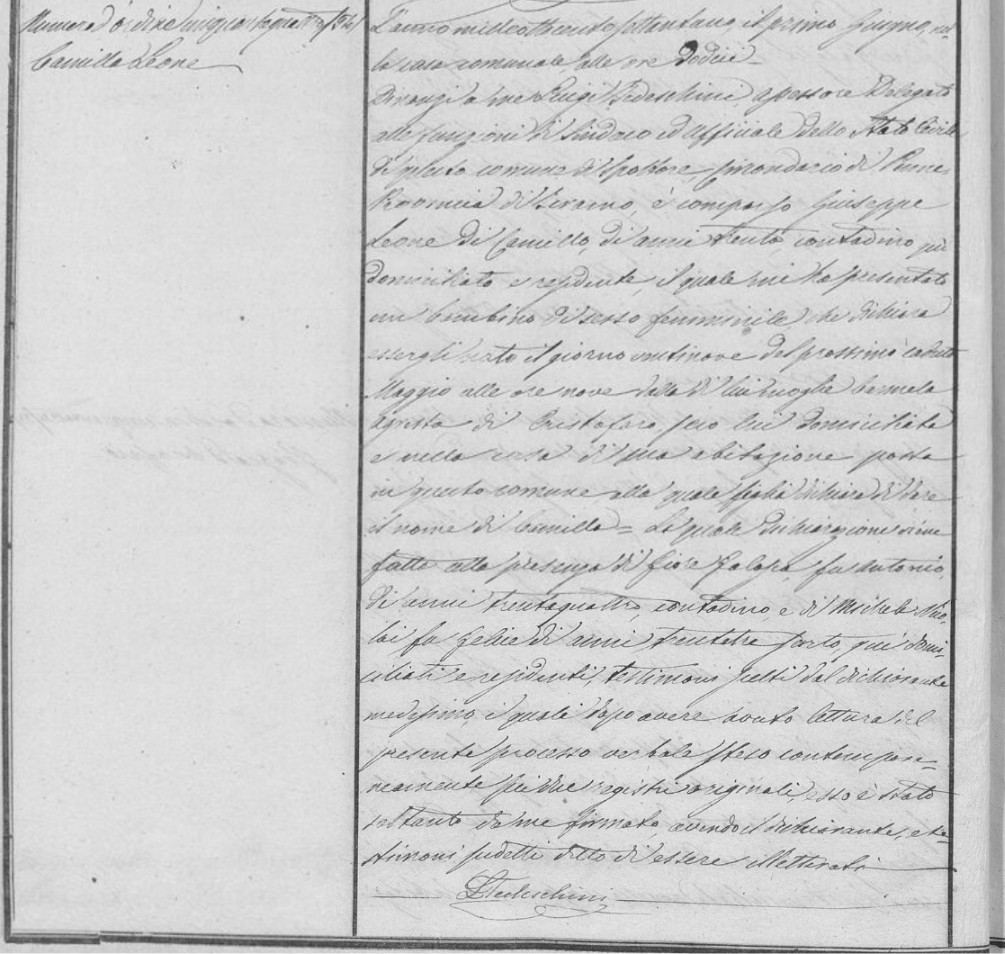 Numero d'ordine cinquantaquattro /54/
Camilla Leone
L'anno milleottocento settantuno, il primo Giugno, nel-
la casa comunale, alle ore Dodici
Dinanzi a me Luigi Tedeschini assessore Delegato
alle funzioni di Sindaco ed Uffiziale dello Stato Civile
di questo comune di Spoltore Circondario di Penne
Provincia di Teramo, è comparso Giuseppe
Leone di Camillo, di anni trenta, contadino qui
domiciliato e residente, il quale mi ha presentato
un bambino di sesso femminile che dichiara
essergli nato il giorno ventinove del prossimo caduto
Maggio alle ore nove dalla di lui moglie Carmela
Agresta di Cristofaro, seco lui domiciliata
e nella casa di sua abitazione posta
in questo comune alla quale figlia dichiara di dare
il nome di Camilla = La quale dichiarazione viene
fatta alla presenza di Fiore fu Antonio,
di anni trentaquattro, contadino, e di Michele
fu Felice di anni trentatre sarto, qui domi-
ciliati e residenti, testimoni scelti dal dichiarante
medesimo, i quali dopo avere avuto lettura del
presente processo verbale steso contempora-
neamente sui due registri originali, esso è stato
soltanto da me firmato, avendo il dichiarante, e te-
stimoni sudetti detto di essere illetterati
LTedeschini